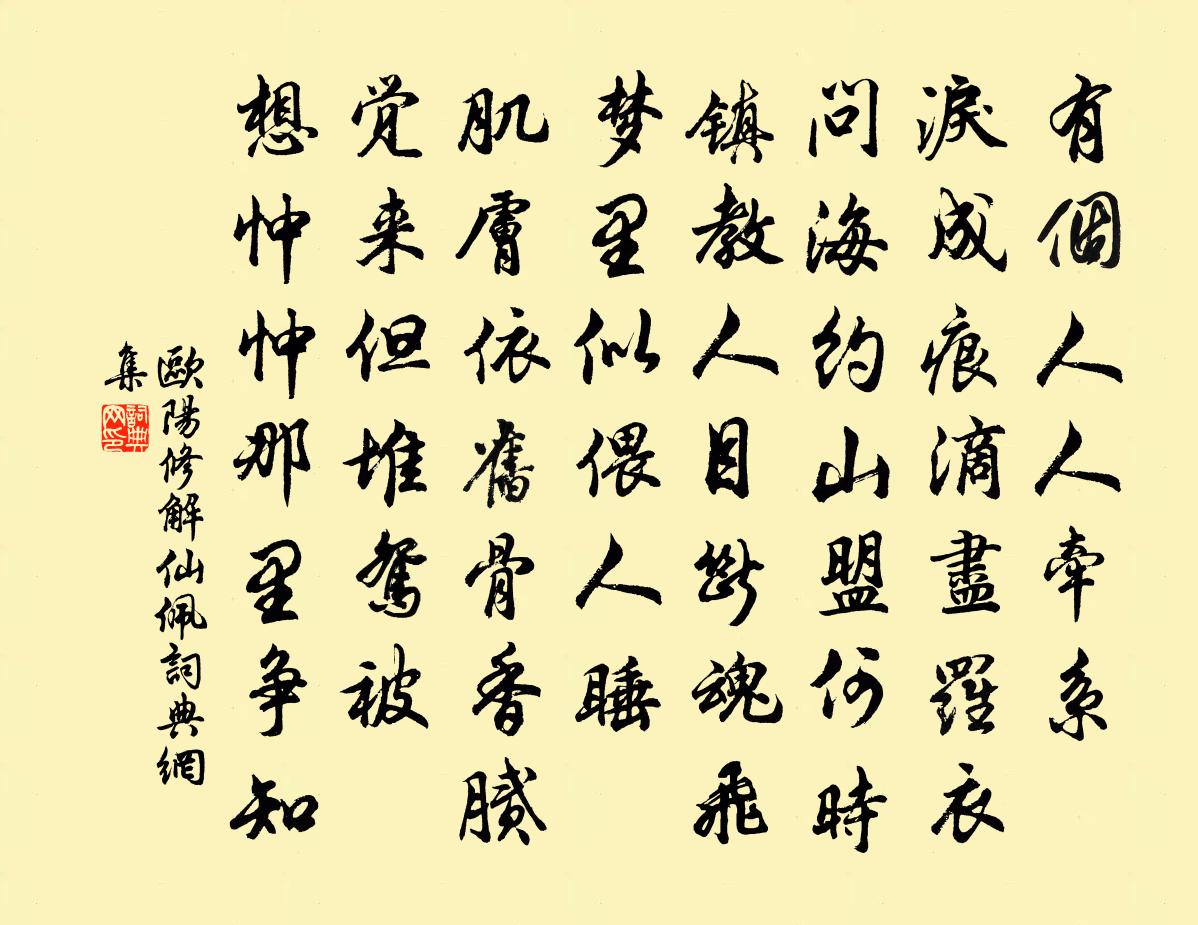 有個人人牽系
淚成痕滴盡羅衣
問海約山盟何時
镇教人目斷魂飛
梦里似偎人睡
肌膚依舊骨香膩
觉来但堆鴛被
想忡忡那里争知
歐陽修解仙佩詞典網
集
詞典
网印